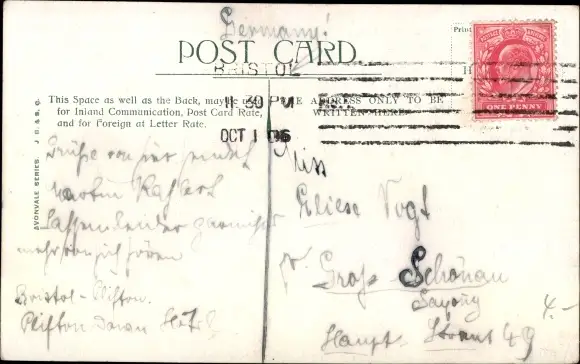 Germany!
POST CARD
BRISTOL
1 30 PM
OCT 1 06
This Space as well as the Back, may be used
for Inland Communication, Post Card Rate,
and for Foreign at Letter Rate.
THE ADDRESS ONLY TO BE
WRITTEN HERE
ONE PENNY
AVONVALE SERIES. J B & S, C.
Grüße von hier sendet
Martin
mehr von sich hören
Bristol-Clifton.
Clifton Down Hotel
Miss
Eliese Vogt
Groß Schönau
Saxony
Haupt Straat 49
4.-